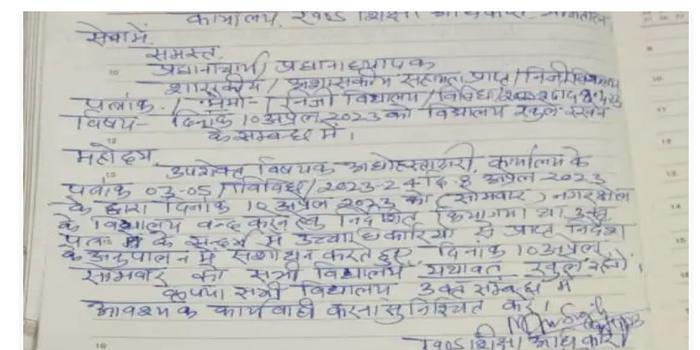 कार्यालय, खण्ड शिक्षा अधिकारी
सेवा में,
समस्त
प्रधानाचार्य / प्रधानाध्यापक
शासकीय / अशासकीय सहायता प्राप्त / निजी विद्यालय
पत्रांक / मेमो- / निजी विद्यालय / विविध /
विषय- दिनांक 10 अप्रैल 2023 को विद्यालय खुले रखने
के सम्बन्ध में।
महोदय,
उपरोक्त विषयक अधोहस्ताक्षरी, कार्यालय के
पत्रांक 03-05 / विविध / 2023-24 दि. 8 अप्रैल 2023
के द्वारा दिनांक 10 अप्रैल 2023 को (सोमवार) नगरक्षेत्र
के विद्यालय बन्द करने हेतु निर्देशित किया गया था उक्त
पत्र के सन्दर्भ में उच्चाधिकारियों से प्राप्त निर्देश
के अनुपालन में संशोधन करते हुए दिनांक 10 अप्रैल,
सोमवार को सभी विद्यालय यथावत खुले रहेंगे।
कृपया सभी विद्यालय उक्त सम्बन्ध में
आवश्यक कार्यवाही करना सुनिश्चित करें।
खण्ड शिक्षा अधिकारी